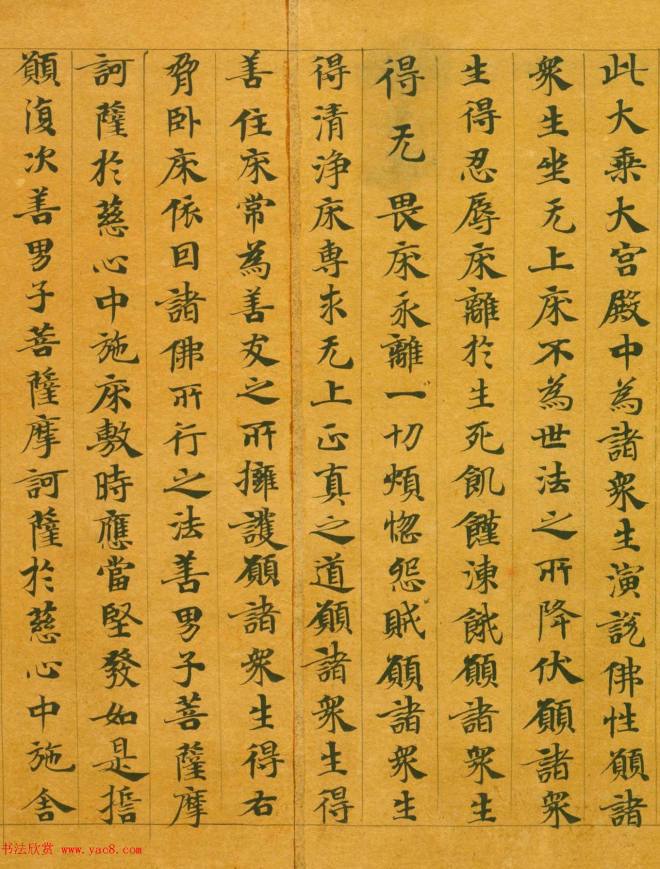 此大乘大宮殿中為諸衆生演說佛性願諸
衆生坐无上床不為世法之所降伏願諸衆
生得忍辱床離於生死飢饉凍餓願諸衆生
得无畏床永離一切煩惚怨賊願諸衆生
得清淨床専求无上正真之道願諸衆生得
善住床常為善友之所擁護願諸衆生得右
脅卧床依因諸佛所行之法善男子菩薩摩
訶薩於慈心中施床敷時應當堅發如是誓
願復次善男子菩薩摩訶薩於慈心中施舍
书法欣赏 www.yac8.com